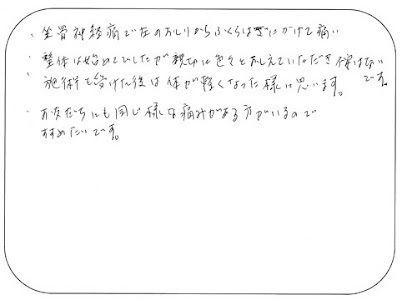 ・坐骨神経痛で左のおしりからふくらはぎにかけて痛い
・整体は始めてでしたが親切に色々とおしえていただき不安はないです。
・施術を受けた後は体が軽くなった様に思います。
・お友だちにも同じ様な痛みがある方がいるので
すすめたいです。